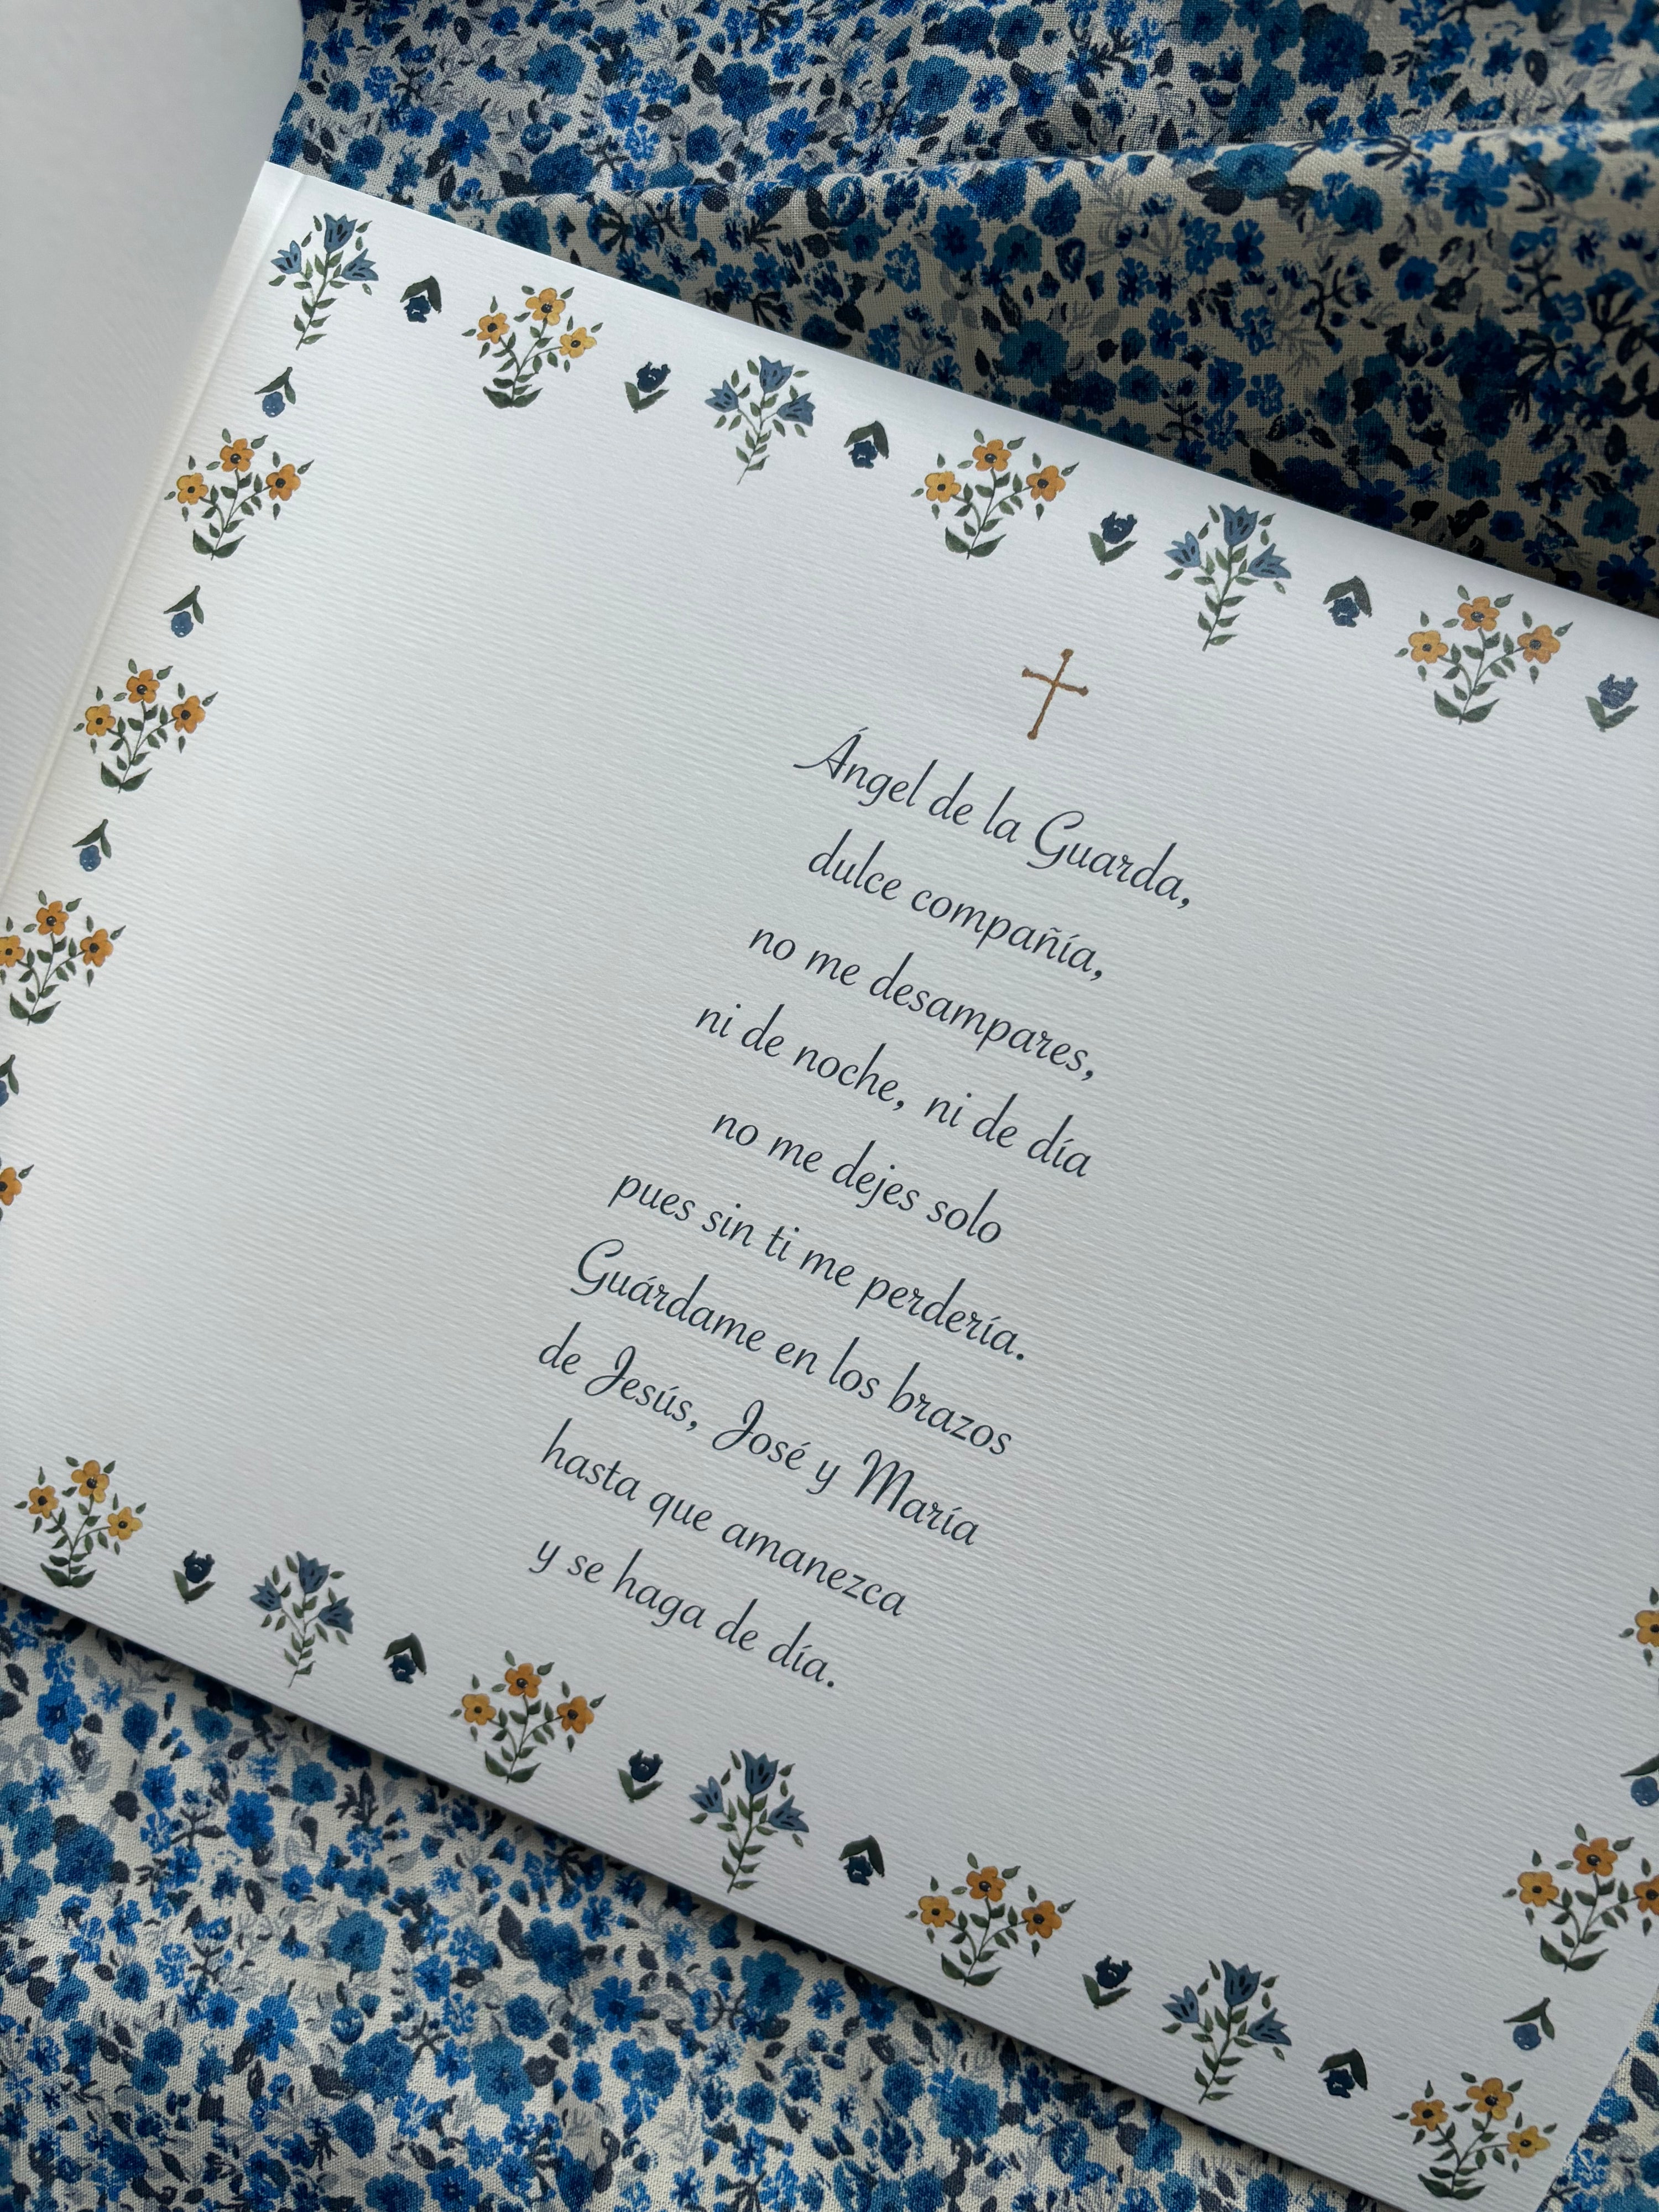 Ángel de la Guarda,
dulce compañía,
no me desampares,
ni de noche, ni de día
no me dejes solo
pues sin ti me perdería.
Guárdame en los brazos
de Jesús, José y María
hasta que amanezca
y se haga de día.